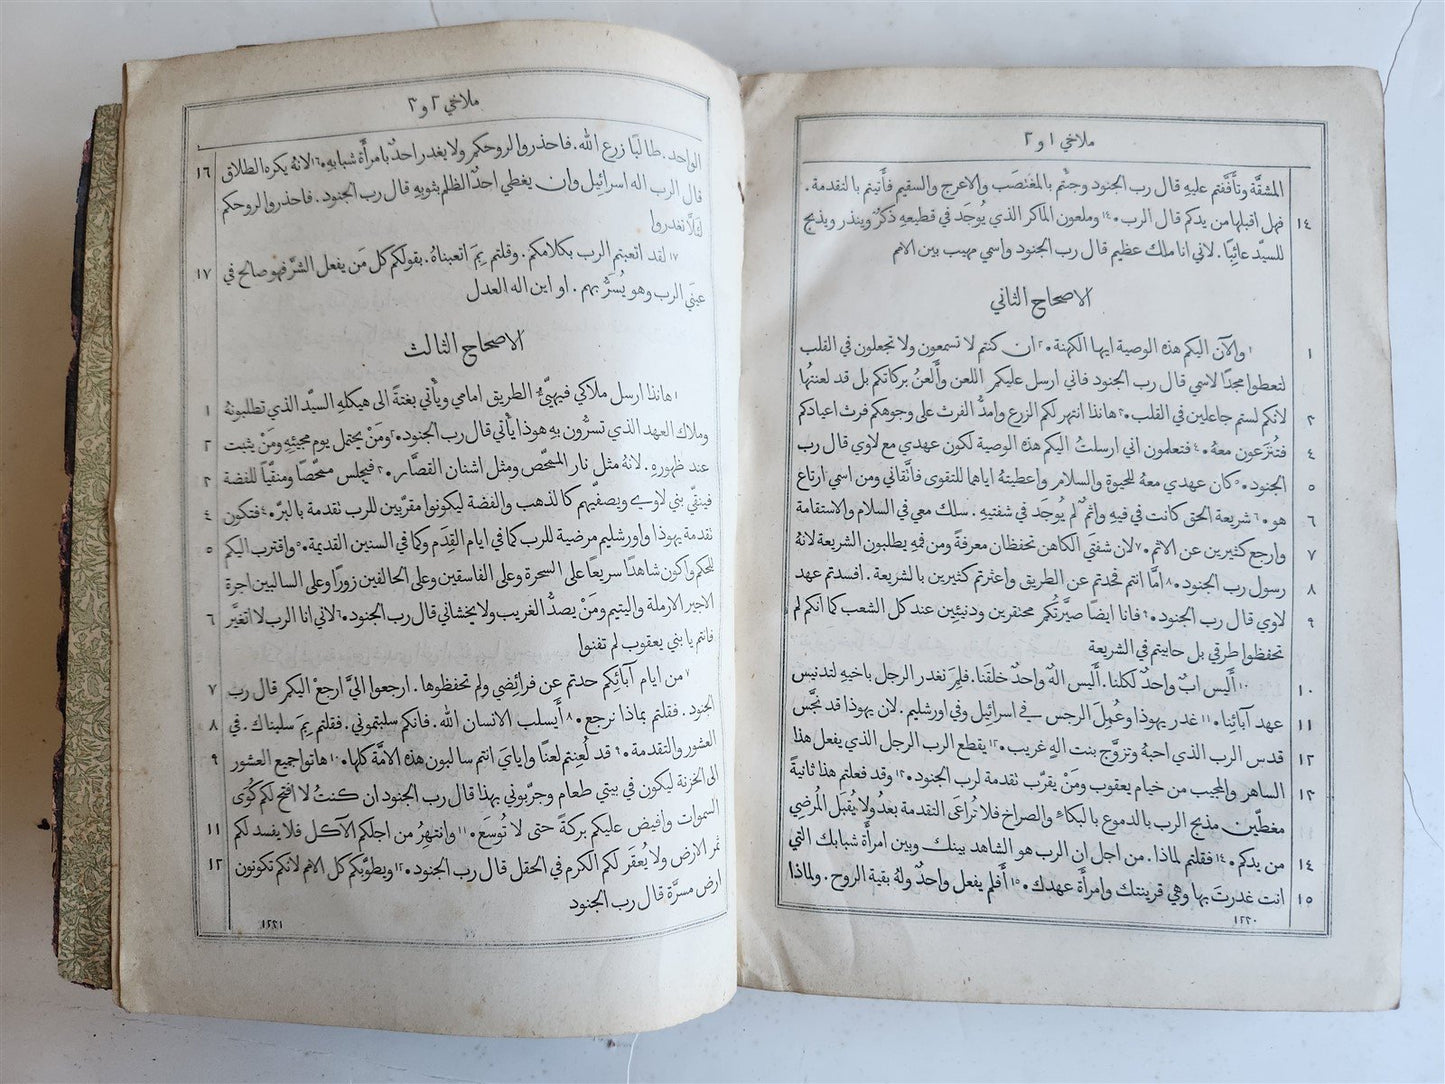 ملاخي ١ و ٢
المشقَّة وتأَفَّفتم عليهِ قال رب الجنود وجئتم بالمغتصَب والاعرج والسقيم فأَتيتم بالتقدمة .
١٤ فهل اقبلها من يدكم قال الرب • ١٤ وملعون الماكر الذي يُوجَد في قطيعهِ ذكرٌ وينذر ويذبح
للسيّد عائبًا . لاني انا ملك عظيم قال رب الجنود واسمي مهيب بين الامم
الاصحاح الثاني
١ ١ والآن اليكم هذه الوصية ايها الكهنة • ٢ ان كنتم لا تسمعون ولا تجعلون في القلب
لتعطوا مجدًا لاسمي قال رب الجنود فاني ارسل عليكم اللعن وأَلعنُ بركاتكم بل قد لعنتُها
٣ لانكم لستم جاعلين في القلب • ٣ هانذا انتهر لكم الزرع وامدُّ الفرث على وجوهكم فرث اعيادكم
٤ فتُنزَعون معهُ • ٤ فتعلمون اني ارسلتُ اليكم هذه الوصية لكون عهدي مع لاوي قال رب
٥ الجنود • ٥ كان عهدي معهُ للحيوة والسلام واعطيتهُ اياها للتقوى فاتَّقاني ومن اسمي ارتاع
٦ هو • ٦ شريعة الحق كانت في فيهِ واثمٌ لم يُوجَد في شفتيهِ . سلك معي في السلام والاستقامة
٧ وارجع كثيرين عن الاثم • ٧ لان شفتَي الكاهن تحفظان معرفةً ومن فمهِ يطلبون الشريعة لانهُ
٨ رسول رب الجنود • ٨ امَّا انتم فحدتم عن الطريق واعثرتم كثيرين بالشريعة . افسدتم عهد
٩ لاوي قال رب الجنود • ٩ فانا ايضًا صيَّرتُكم محتقرين ودنيئِين عند كل الشعب كما انكم لم
تحفظوا طرقي بل حابيتم في الشريعة
١٠ ١٠ أَليس ابٌ واحدٌ لكلنا . أَليس الهٌ واحدٌ خلقَنا . فلِمَ نغدر الرجل باخيهِ لتدنيس
١١ عهد آبائِنا • ١١ غدر يهوذا وعُمِلَ الرجس في اسرائيل وفي اورشليم . لان يهوذا قد نجَّس
١٢ قدس الرب الذي احبهُ وتزوَّج بنت الهٍ غريب • ١٢ يقطع الرب الرجل الذي يفعل هذا
١٣ الساهر والمجيب من خيام يعقوب ومَنْ يقرّب تقدمة لرب الجنود • ١٣ وقد فعلتم هذا ثانيةً
مغطّين مذبح الرب بالدموع بالبكاءِ والصراخ فلا تُراعَى التقدمة بعدُ ولا يُقبَل المُرضِي
١٤ من يدكم • ١٤ فقلتم لماذا . من اجل ان الرب هو الشاهد بينك وبين امرأَة شبابك التي
١٥ انت غدرتَ بها وهي قرينتك وامرأَة عهدك • ١٥ أَفلم يفعل واحدٌ ولهُ بقية الروح . ولماذا
١٢٢٠
ملاخي ٢ و ٣
الواحد . طالبًا زرع الله . فاحذروا لروحكم ولا يغدر احدٌ بامرأَة شبابهِ • ١٦ لانهُ يكره الطلاق ١٦
قال الرب اله اسرائيل وان يغطي احدٌ الظلم بثوبهِ قال رب الجنود . فاحذروا لروحكم
لئَلَّا تغدروا
١٧ لقد اتعبتم الرب بكلامكم . وقلتم بِمَ اتعبناهُ . بقولكم كل مَن يفعل الشرّ فهو صالح في ١٧
عينَي الرب وهو يُسَرُّ بهم . او اين اله العدل
الاصحاح الثالث
١ هانذا ارسل ملاكي فيهيِّئُ الطريق امامي ويأْتي بغتةً الى هيكلهِ السيّد الذي تطلبونهُ ١
وملاك العهد الذي تسرُّون بهِ هوذا يأْتي قال رب الجنود • ٢ ومَنْ يحتمل يوم مجيئِهِ ومَنْ يثبت ٢
عند ظهورهِ . لانهُ مثل نار الممحِّص ومثل اشنان القصَّار • ٣ فيجلس ممحِّصًا ومنقّيًا للفضة ٣
فينقّي بني لاوي ويصفّيهم كالذهب والفضة ليكونوا مقرّبين للرب تقدمة بالبرّ • ٤ فتكون ٤
تقدمة يهوذا واورشليم مرضية للرب كما في ايام القِدَم وكما في السنين القديمة • ٥ واقترب اليكم ٥
للحكم واكون شاهدًا سريعًا على السحرة وعلى الفاسقين وعلى الحالفين زورًا وعلى السالبين اجرة
الاجير الارملة واليتيم ومَنْ يصدُّ الغريب ولا يخشاني قال رب الجنود • ٦ لاني انا الرب لا اتغيَّر ٦
فانتم يا بني يعقوب لم تفنوا
٧ من ايام آبائِكم حدتم عن فرائضي ولم تحفظوها . ارجعوا اليَّ ارجعْ اليكم قال رب ٧
الجنود . فقلتم بماذا نرجع • ٨ أَيسلب الانسان الله . فانكم سلبتموني . فقلتم بِمَ سلبناك . في ٨
العشور والتقدمة • ٩ قد لُعِنتم لعنًا وايايَ انتم سالبون هذه الامَّة كلها • ١٠ هاتوا جميع العشور ٩
الى الخزنة ليكون في بيتي طعام وجرّبوني بهذا قال رب الجنود ان كنتُ لا افتح لكم كُوَى
السموات وافيض عليكم بركةً حتى لا تُوسَع • ١١ وانتهِرُ من اجلكم الآكل فلا يفسد لكم ١١
ثمر الارض ولا يُعقَر لكم الكرم في الحقل قال رب الجنود • ١٢ ويطوّبكم كل الامم لانكم تكونون ١٢
ارض مسرَّة قال رب الجنود
١٢٢١